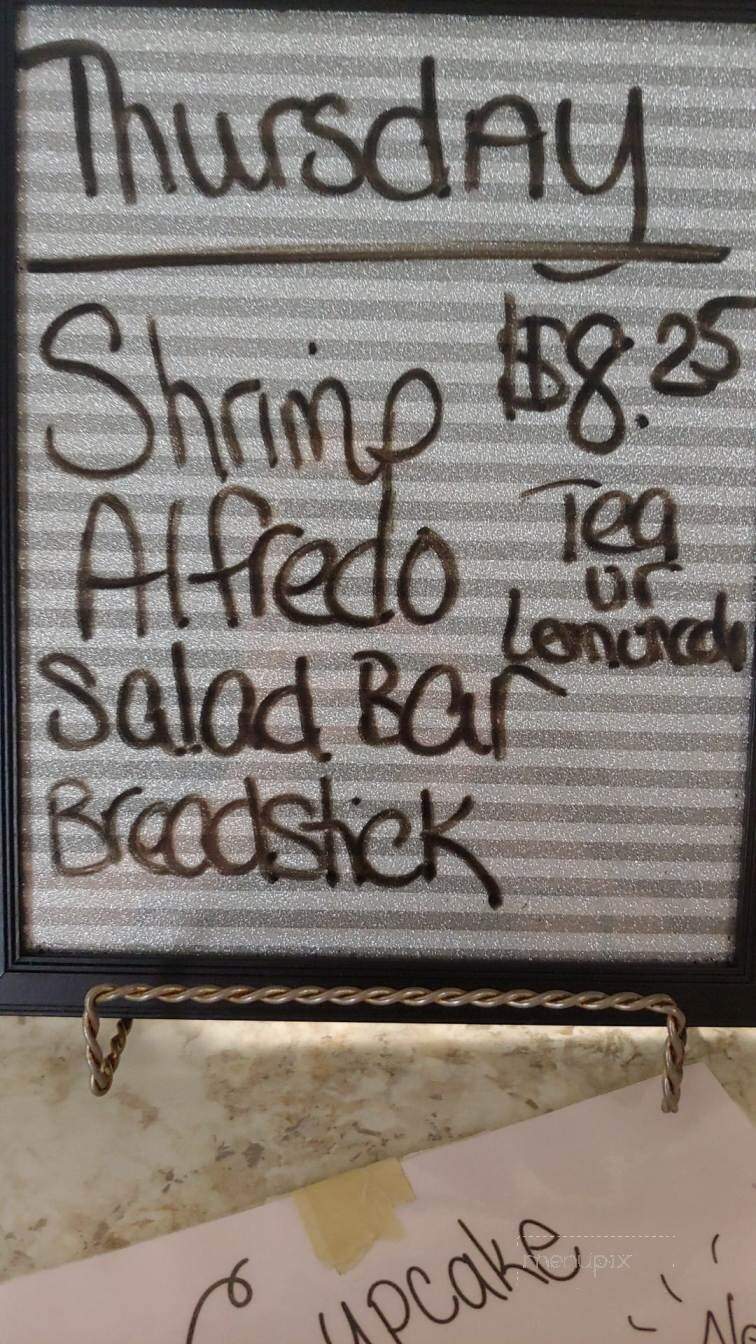 ThursdAy
Shrimp $8.25
Alfredo Tea
or
Lemonade
Salad Bar
Breadstick
upcake
menupix